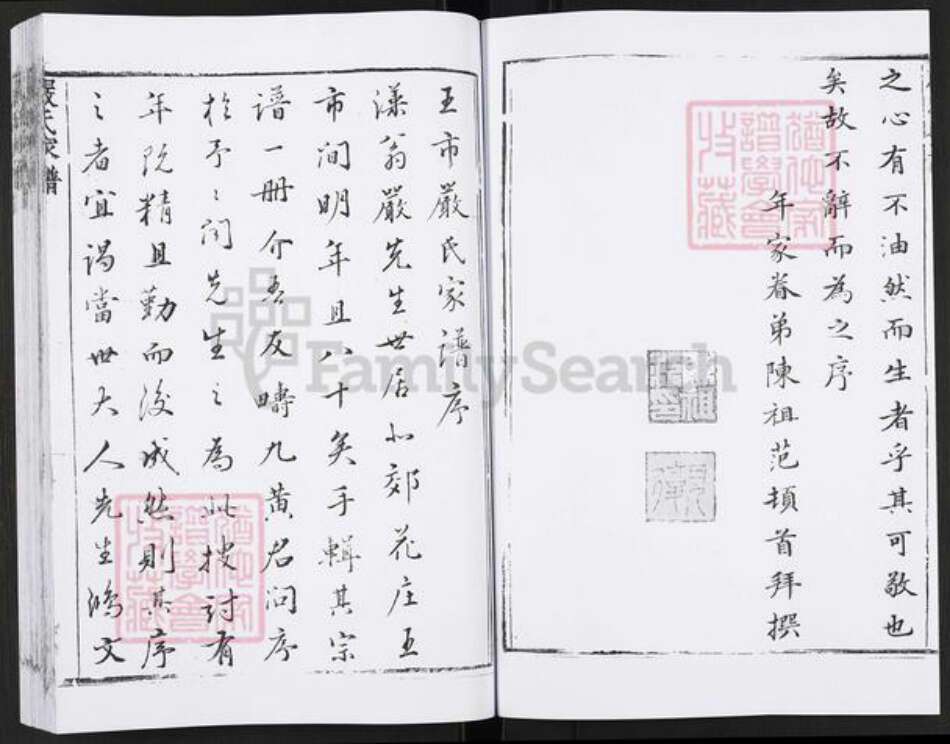 之心有不油然而生者乎其可敬也
矣故不辭而為之序
年家眷弟陳祖范頓首拜撰
王市嚴氏家譜序
漾翁嚴先生世居北郊花庄王
市間明年且八十矣手輯其宗
譜一册介吾友疇九黃君问序
於予予问先生之為此搜討有
年既精且勤而後成然則其序
之者宜谒當世大人先生鴻文
嚴氏家譜
FamilySearch